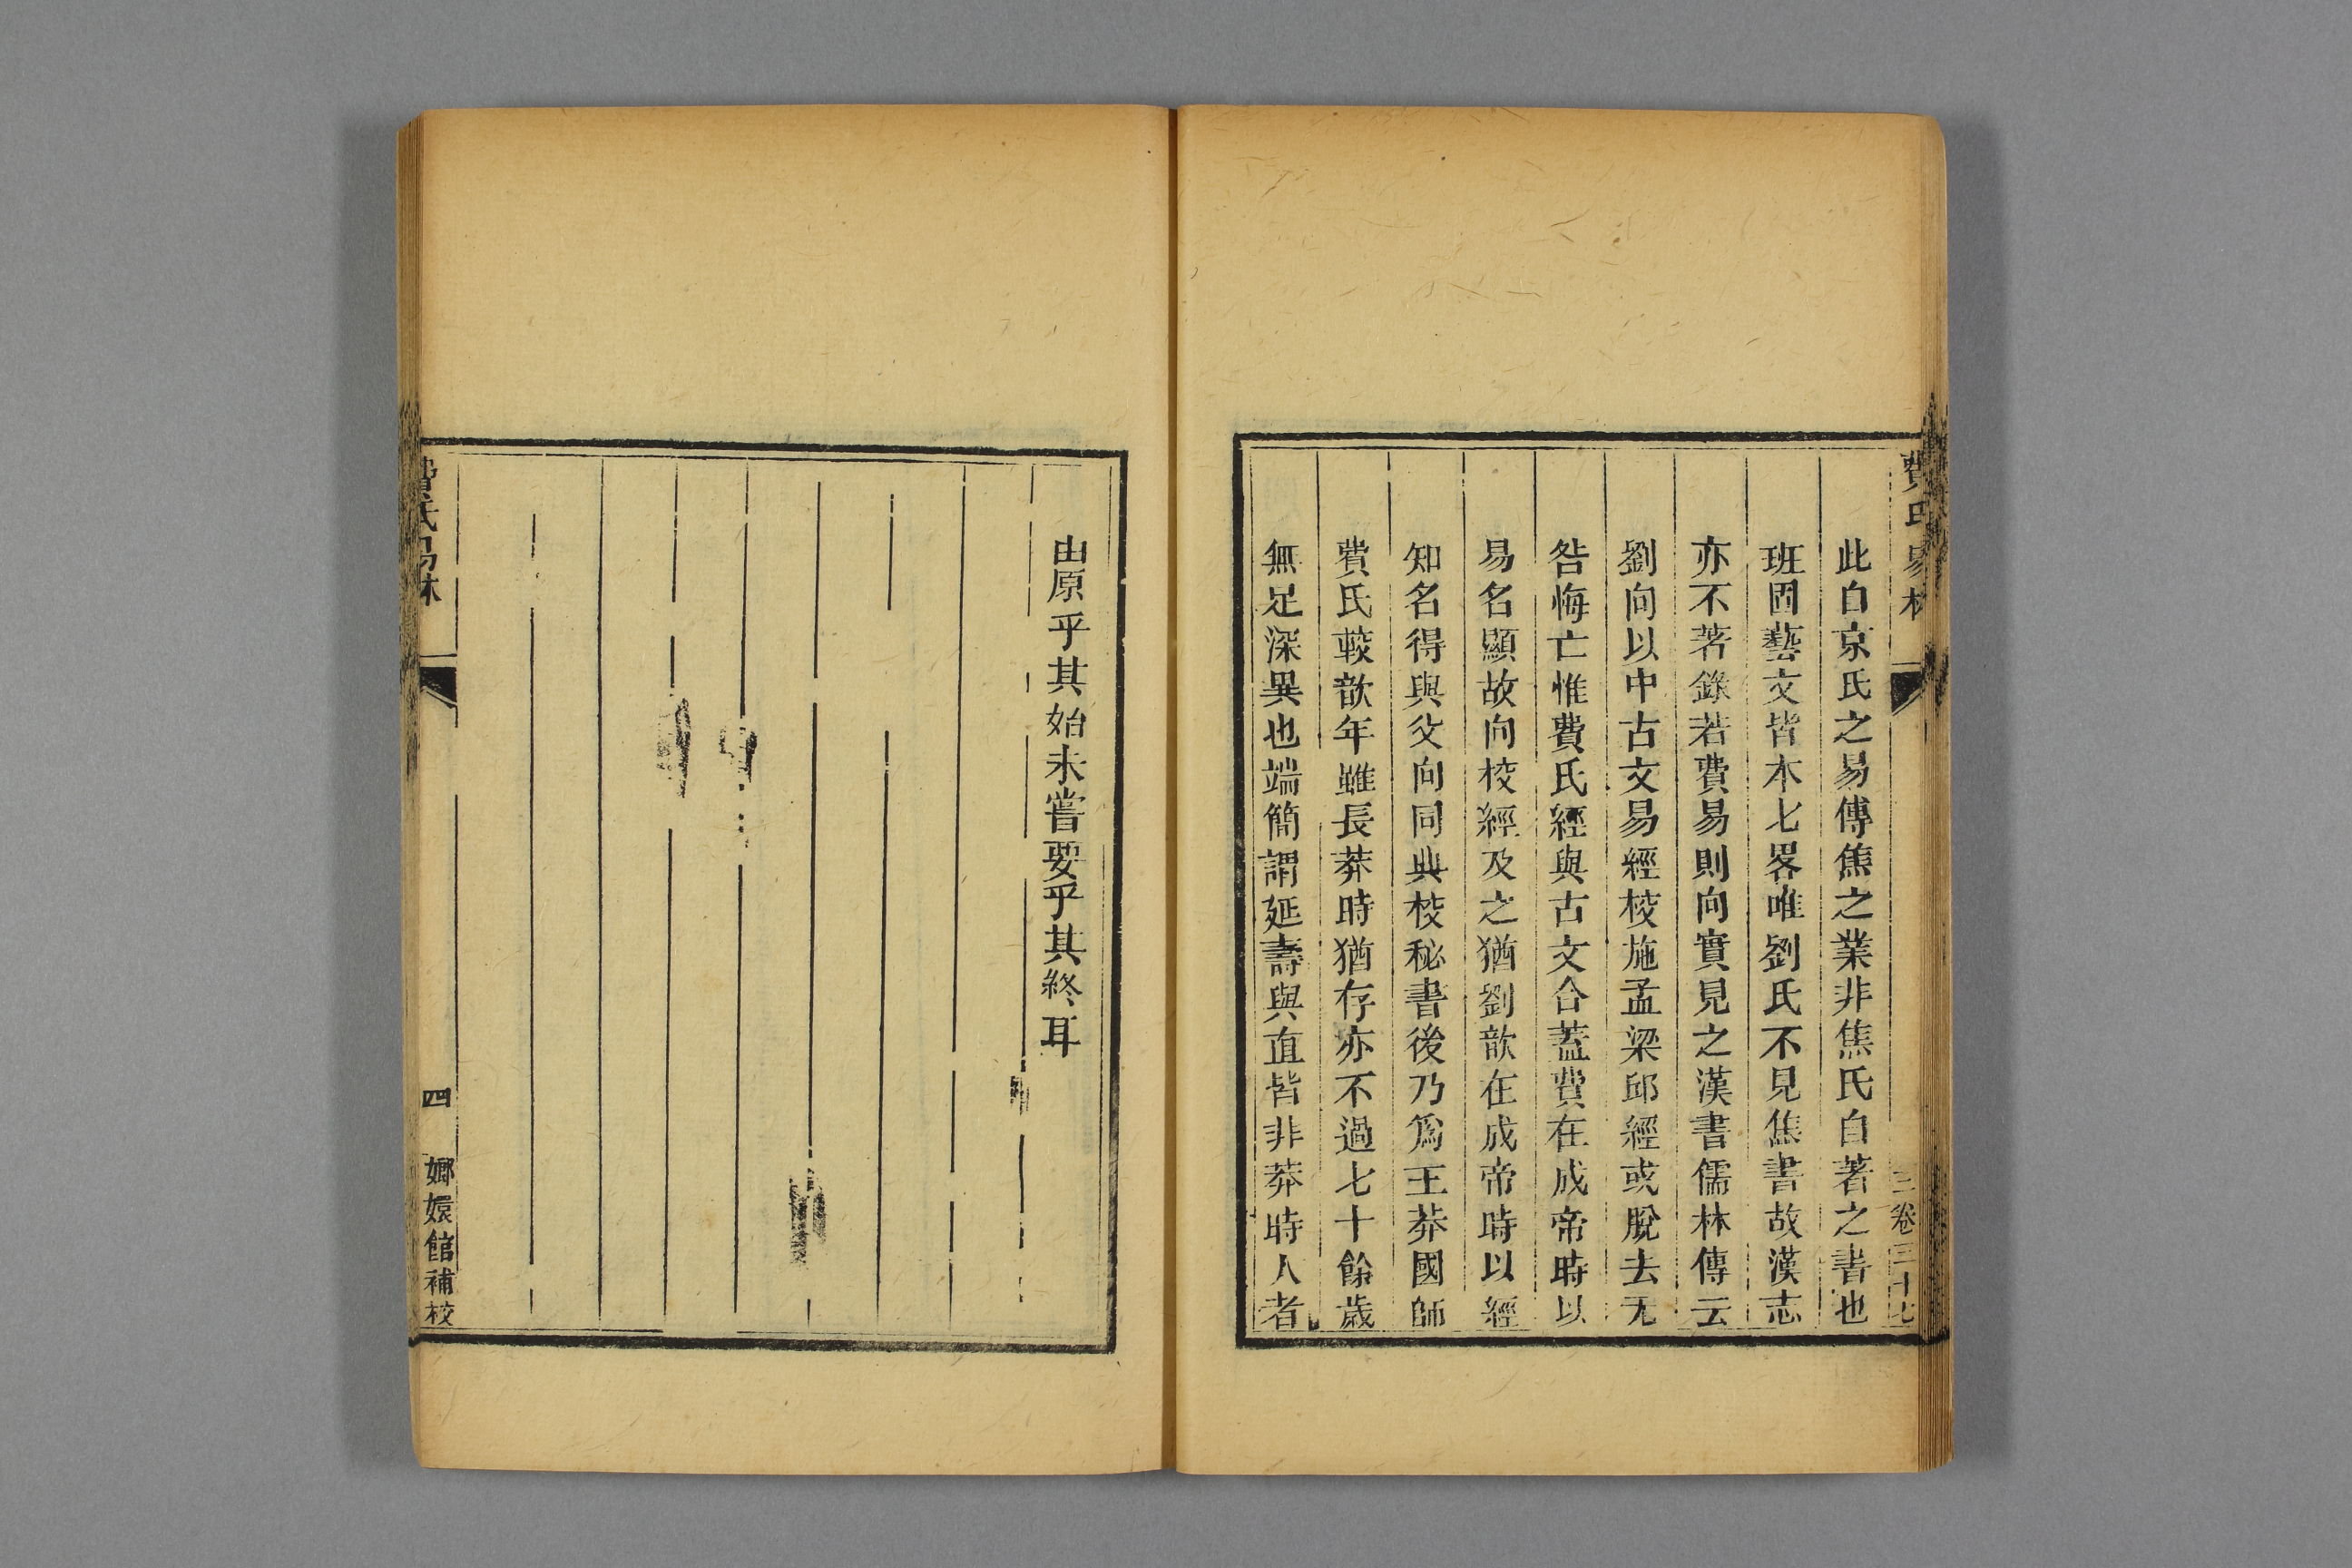 費氏易林
三卷三十七
此自京氏之易傳焦之業非焦氏自著之書也
班固藝文皆本七畧唯劉氏不見焦書故漢志
亦不著錄若費易則向實見之漢書儒林傳云
劉向以中古文易經校施孟梁邱經或脫去无
咎悔亡惟費氏經與古文合蓋費在成帝時以
易名顯故向校經及之猶劉歆在成帝時以經
知名得與父向同典校秘書後乃爲王莽國師
費氏較歆年雖長莽時猶存亦不過七十餘歲
無足深異也端簡謂延壽與直皆非莽時人者
由原乎其始未嘗要乎其終耳
費氏易林
四
嫏嬛館補校